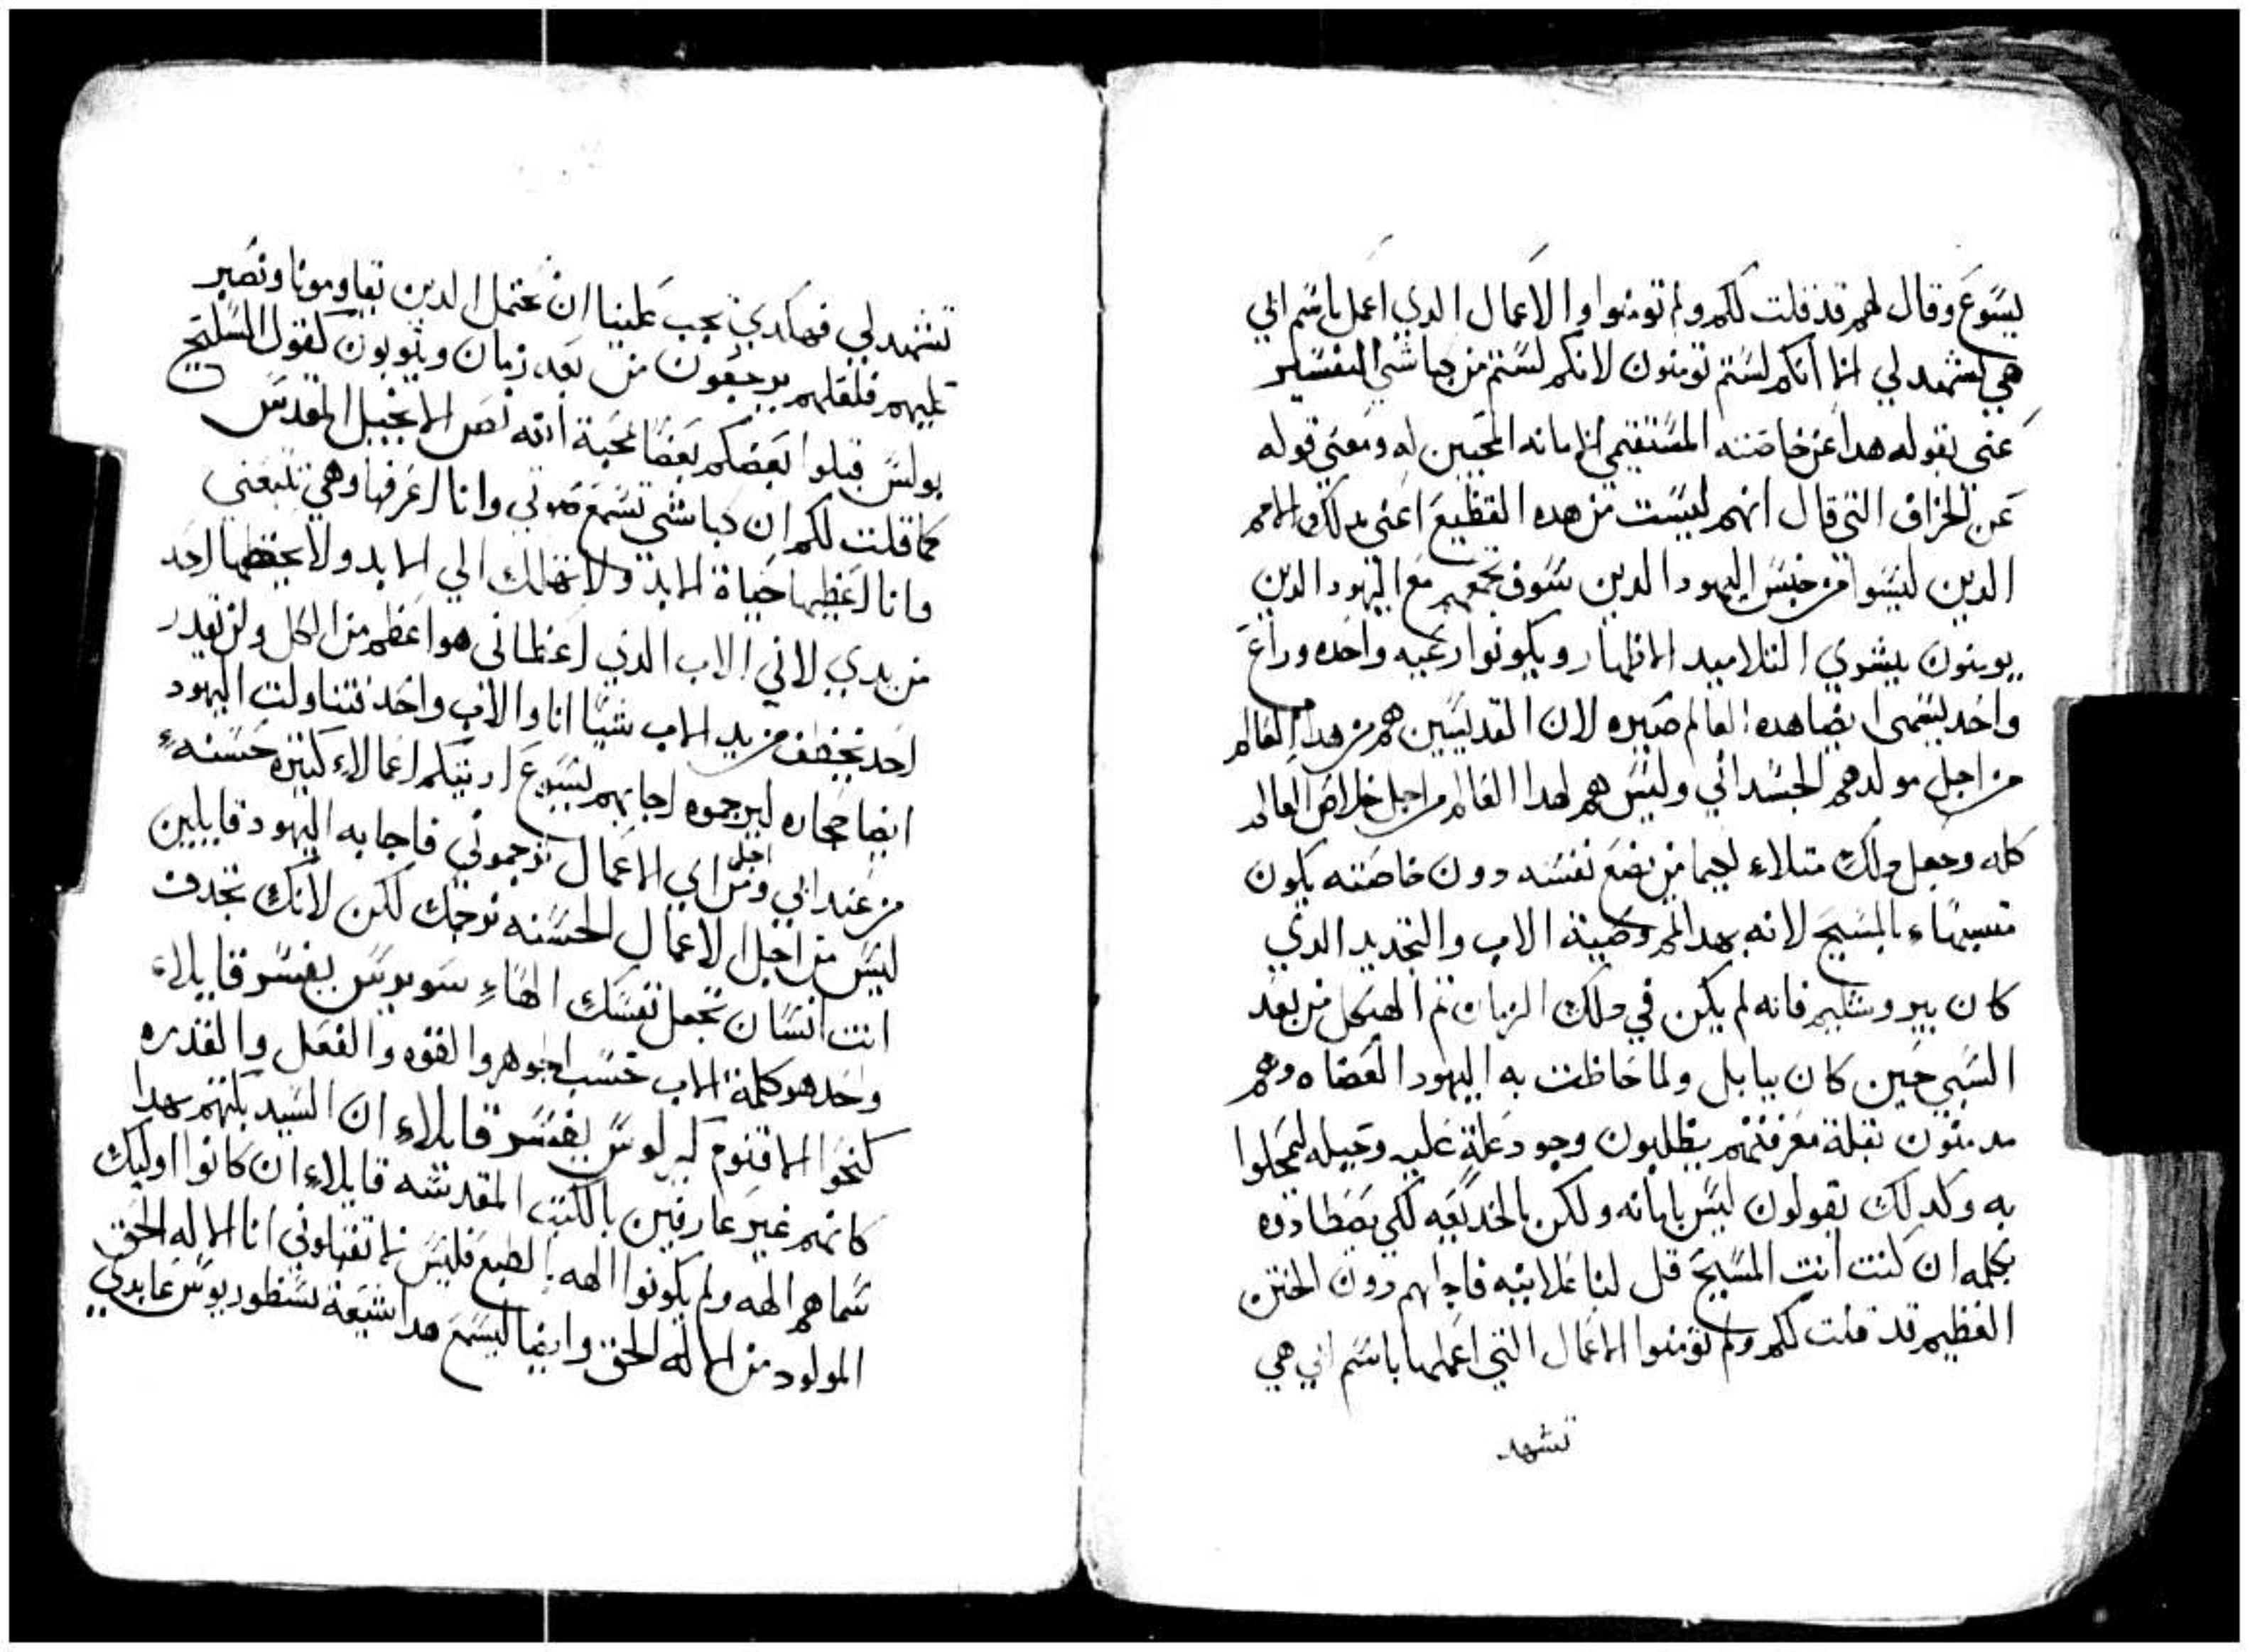 يسوع وقال لهم قد قلت لكم ولم تومنوا والاعمال الدي اعمل باسم ابي
هي تشهد لي انما انكم لستم تومنون لانكم لستم من كباشي التفسير
عني بقوله هدا عن خاصته المستقيمي الامانه المحبين له ومعني قوله
عن الخراف التي قال انهم ليست من هده القطيع اعني بدلك الامم
الدين ليسوا من جنس اليهود الدين سوف تجمعهم مع اليهود الدين
يومنون ببشري التلاميد الاطهار ويكونوا رعيه واحده وراع
واحد يسمى ايضا هده العالم صيره لان القديسين هم من هدا العالم
من اجل مولدهم الجسداني وليس هم لهدا العالم من اجل خلاص العالم
كله وجعل دلك متلاء لجيما من يضع نفسه دون خاصته يكون
تسبيهاء بالمسيح لانه بهدا امر وصية الاب والتجديد الدي
كان بيروشليم فانه لم يكن في دلك الزمان تم الهيكل من بعد
السبي حين كان ببابل ولما حاظت به اليهود العضاه وهم
مدمنون بقلة معرفتهم يطلبون وجود علة عليه وحيله ليمحلوا
به وكدلك يقولون ليس بامانه ولكن بالخديعه لكي يصطادوه
بكلمه ان كنت انت المسيح قل لنا علانيه فاجابهم دون الحنن
العظيم قد قلت لكم ولم تومنوا الاعمال التي اعملها باسم ابي هي
تشهد
تشهد لي فهكدي يجب علينا ان نحتمل الدين يقاومونا ونصبر
عليهم فلعلهم يرجعون من بعد زمان ويتوبون كقول السليح
بولس قبلوا بعضكم بعضا لمحبة الله نص الانجيل المقدس
كما قلت لكم ان كباشي تسمع صوتي وانا اعرفها وهي تتبعني
وانا اعطيها حياة الابد ولا تهلك الي الابد ولا يخطفها احد
من يدي لاني الاب الدي اعطاني هو اعظم من الكل ولن يقدر
احد يخطف من يد الاب شيا انا والاب واحد فتناولت اليهود
ايضا حجاره ليرجموه اجابهم يسوع اريتكم اعمالاء كتيره حسنهء
من عند ابي ومن اجل اي الاعمال ترجموني فاجابه اليهود قايلين
ليس من اجل الاعمال الحسنه نرجمك لكن لانك تجدف
انت انسان تجعل نفسك الهاء سويرس يفسر قايلاء
واحد هو كلمة الاب حسب الجوهر والقوه والفعل والقدره
كنحو الاقنوم كيرلوس يفسر قايلاء ان السيد بكتهم بهدا
كانهم غير عارفين بالكتب المقدسه قايلاء ان كانوا اوليك
سماهم الهه ولم يكونوا الهه بالطبع فليس لا تقبلوني انا الاله الحق
المولود من الاله الحق وايضا ليسمع هدا شيعة نسطوريوس عابدي